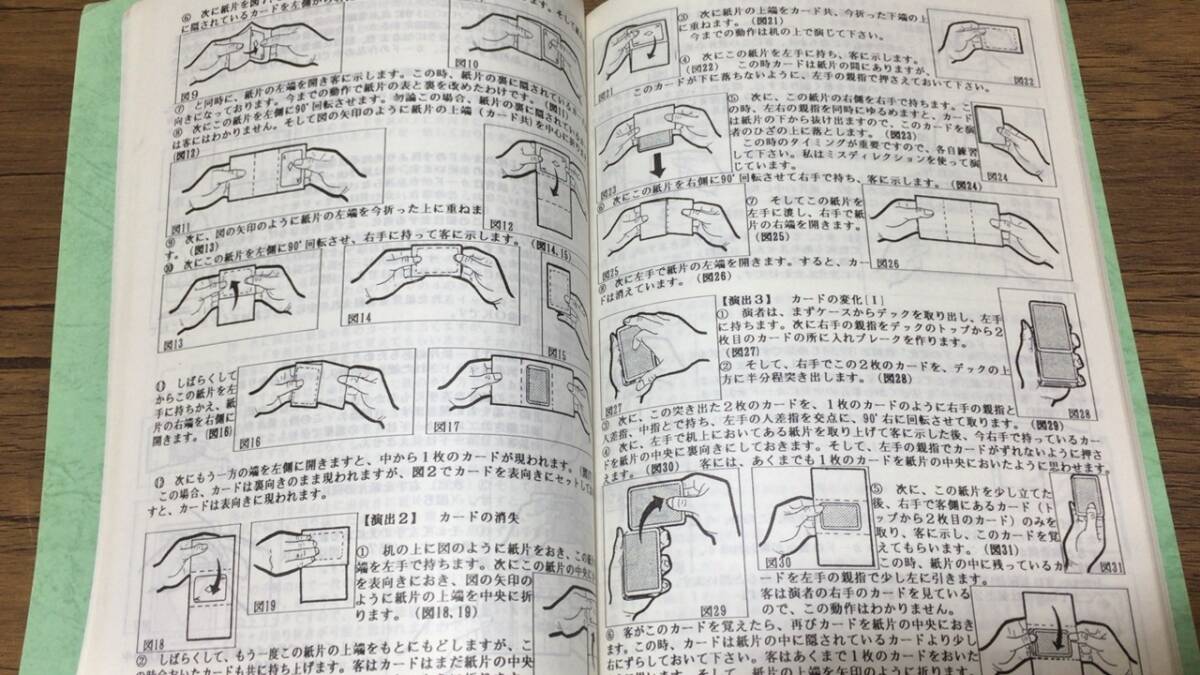 ⑥ 次に紙片を図
に隠されているカードを左側か
図9
図10
⑦ と同時に、紙片の左端を開き客に示します。この時、紙片の裏に隠されている
向きになっております。今までの動作で紙片の表と裏を改めたわけです。(図11)
⑧ 次にこの紙片を左側に90°回転させます。勿論この場合、紙片の裏に隠されている
は客にはわかりません。そして図の矢印のように紙片の上端(カード共)を中心に折り
(図12)
図11
図12
⑨ 次に、図の矢印のように紙片の左端を今折った上に重ねま
す。(図13)
⑩ 次にこの紙片を左側に90°回転させ、右手に持って客に示します。(図14,15)
図13
図14
図15
⑪ しばらくして
からこの紙片を左
手に持ちかえ、紙
片の右端を右側に
開きます。(図16)
図16
図17
⑫ 次にもう一方の端を左側に開きますと、中から1枚のカードが現われます。
この場合、カードは裏向きのまま現われますが、図2でカードを表向きにセットして
すと、カードは表向きに現われます。
【演出2】 カードの消失
図18
図19
① 机の上に図のように紙片をおき、この紙
端を左手で持ちます。次にこの紙片の中央に
を表向きにおき、図の矢印の
ように紙片の上端を中央に折
ります。(図18,19)
② しばらくして、もう一度この紙片の上端をもとにもどしますが、こ
の時今おいたカードも共に持ち上げます。客はカードはまだ紙片の中央
③ 次に紙片の上端をカード共、今折った下端の上
に重ねます。(図21)
今までの動作は机の上で演じて下さい。
④ 次にこの紙片を左手に持ち、客に示します。
(図22) この時カードは紙片の間にありますが、
このカードが下に落ちないように、左手の親指で押さえておいて下さい。
図21
図22
⑤ 次に、この紙片の右側を右手で持ちます。こ
の時、左右の親指を同時にゆるめますと、カード
は紙片の下から抜け出ますので、このカードを演
者のひざの上に落とします。(図23)
この時のタイミングが重要ですので、各自練習
して下さい。私はミスディレクションを使って演
じています。
図23
図24
⑥ 次にこの紙片を右側に90°回転させて右手で持ち、客に示します。(図24)
⑦ そしてこの紙片を
左手に渡し、右手で紙
片の右端を開きます。
(図25)
図25
図26
⑧ 次に左手で紙片の左端を開きます。すると、カー
ドは消えています。(図26)
【演出3】 カードの変化[I]
① 演者は、まずケースからデックを取り出し、左手
に持ちます。次に右手の親指をデックのトップから2
枚目のカードの所に入れブレークを作ります。
(図27)
② そして、右手でこの2枚のカードを、デックの上
方に半分程突き出します。(図28)
図27
図28
③ 次に、この突き出た2枚のカードを、1枚のカードのように右手の親指と
人差指、中指とで持ち、左手の人差指を交点に、90°右に回転させて取ります。(図29)
④ 次に、左手で机上においてある紙片を取り上げて客に示した後、今右手で持っているカー
ドを紙片の中央に裏向きにしておきます。そして、左手の親指でカードがずれないように押さ
えます。(図30) 客には、あくまでも1枚のカードを紙片の中央においたように思わせます。
図29
図30
図31
⑤ 次に、この紙片を少し立てた
後、右手で客側にあるカード(ト
ップから2枚目のカード)のみを
取り、客に示し、このカードを覚
えてもらいます。(図31)
この時、紙片の中に残っているカ
ードを左手の親指で少し左に引きます。
客は演者の右手のカードを見ている
ので、この動作はわかりません。
⑥ 客がこのカードを覚えたら、再びカードを紙片の中央におき
ます。この時、カードは紙片の中に隠されているカードより少し
右にずらしておいて下さい。客はあくまで1枚のカードをおいた